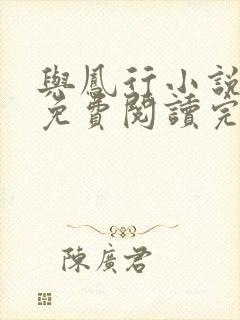 與鳳行小說
免費閱讀完
陳廣君